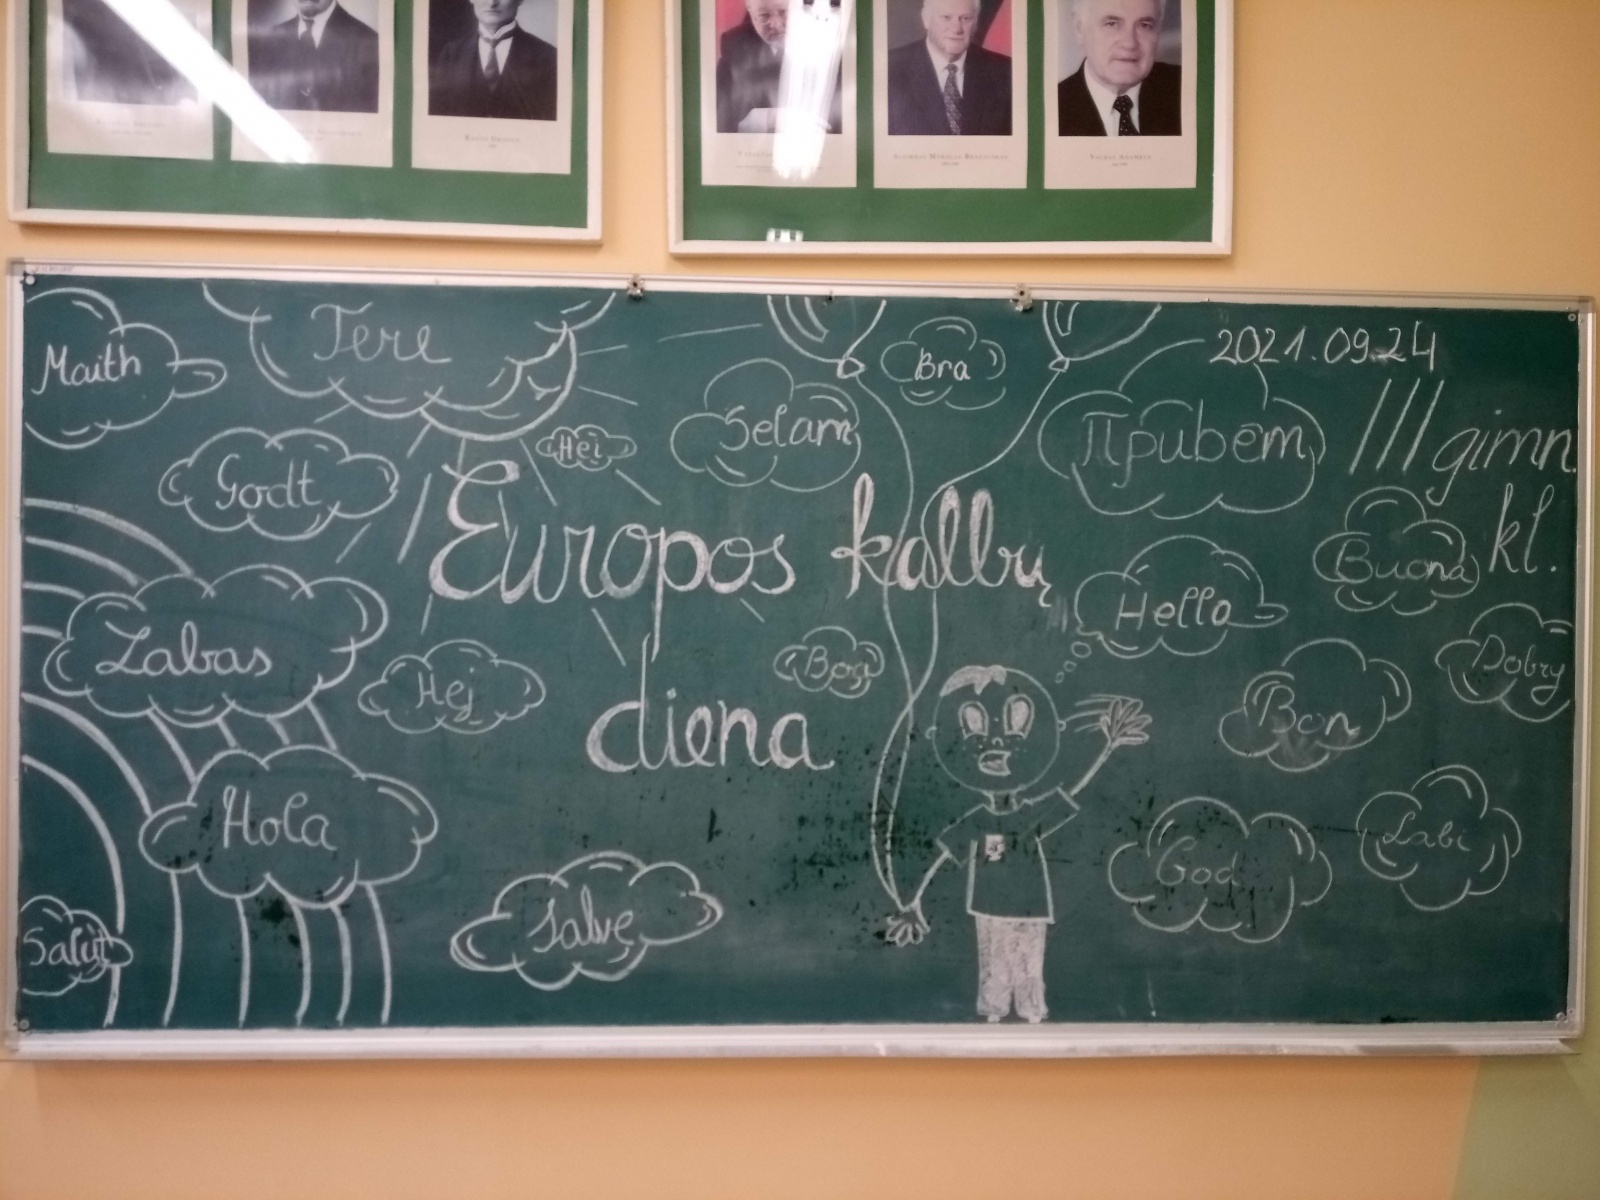 ALGIRDAS MYKOLAS BRAZAUSKAS
VALDAS ADAMKUS
2021.09.24
III gimn.
kl.
Maith
Tere
Bra
Hei
Selam
Привет
Godt
Europos kalbų
diena
Buona
Hello
Labas
Hej
Bog
Dobry
Bon
Hola
God
Labi
Salve
Salut